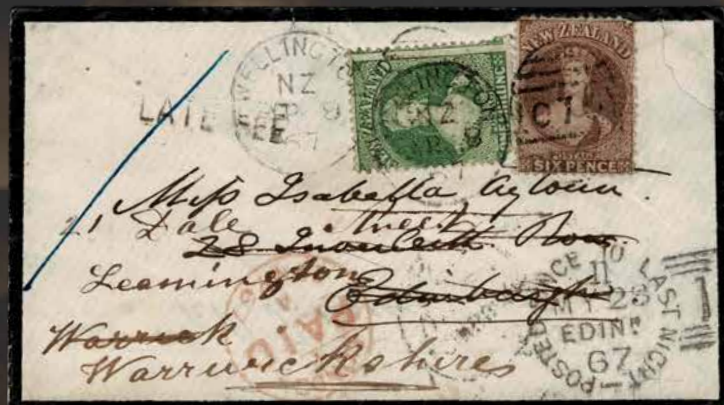 WELLINGTON
NZ
LATE FEE
NEW ZEALAND
NEW ZEALAND
POSTAGE
SIX PENCE
C1
Miss Isabella Aytoun.
21 Dale Street
28 Inverleith Row
Leamington
Edinburgh
Warwick
Warwickshires
PAID
POSTED SINCE 10 LAST NIGHT
11
MY 23
EDINR
67
1